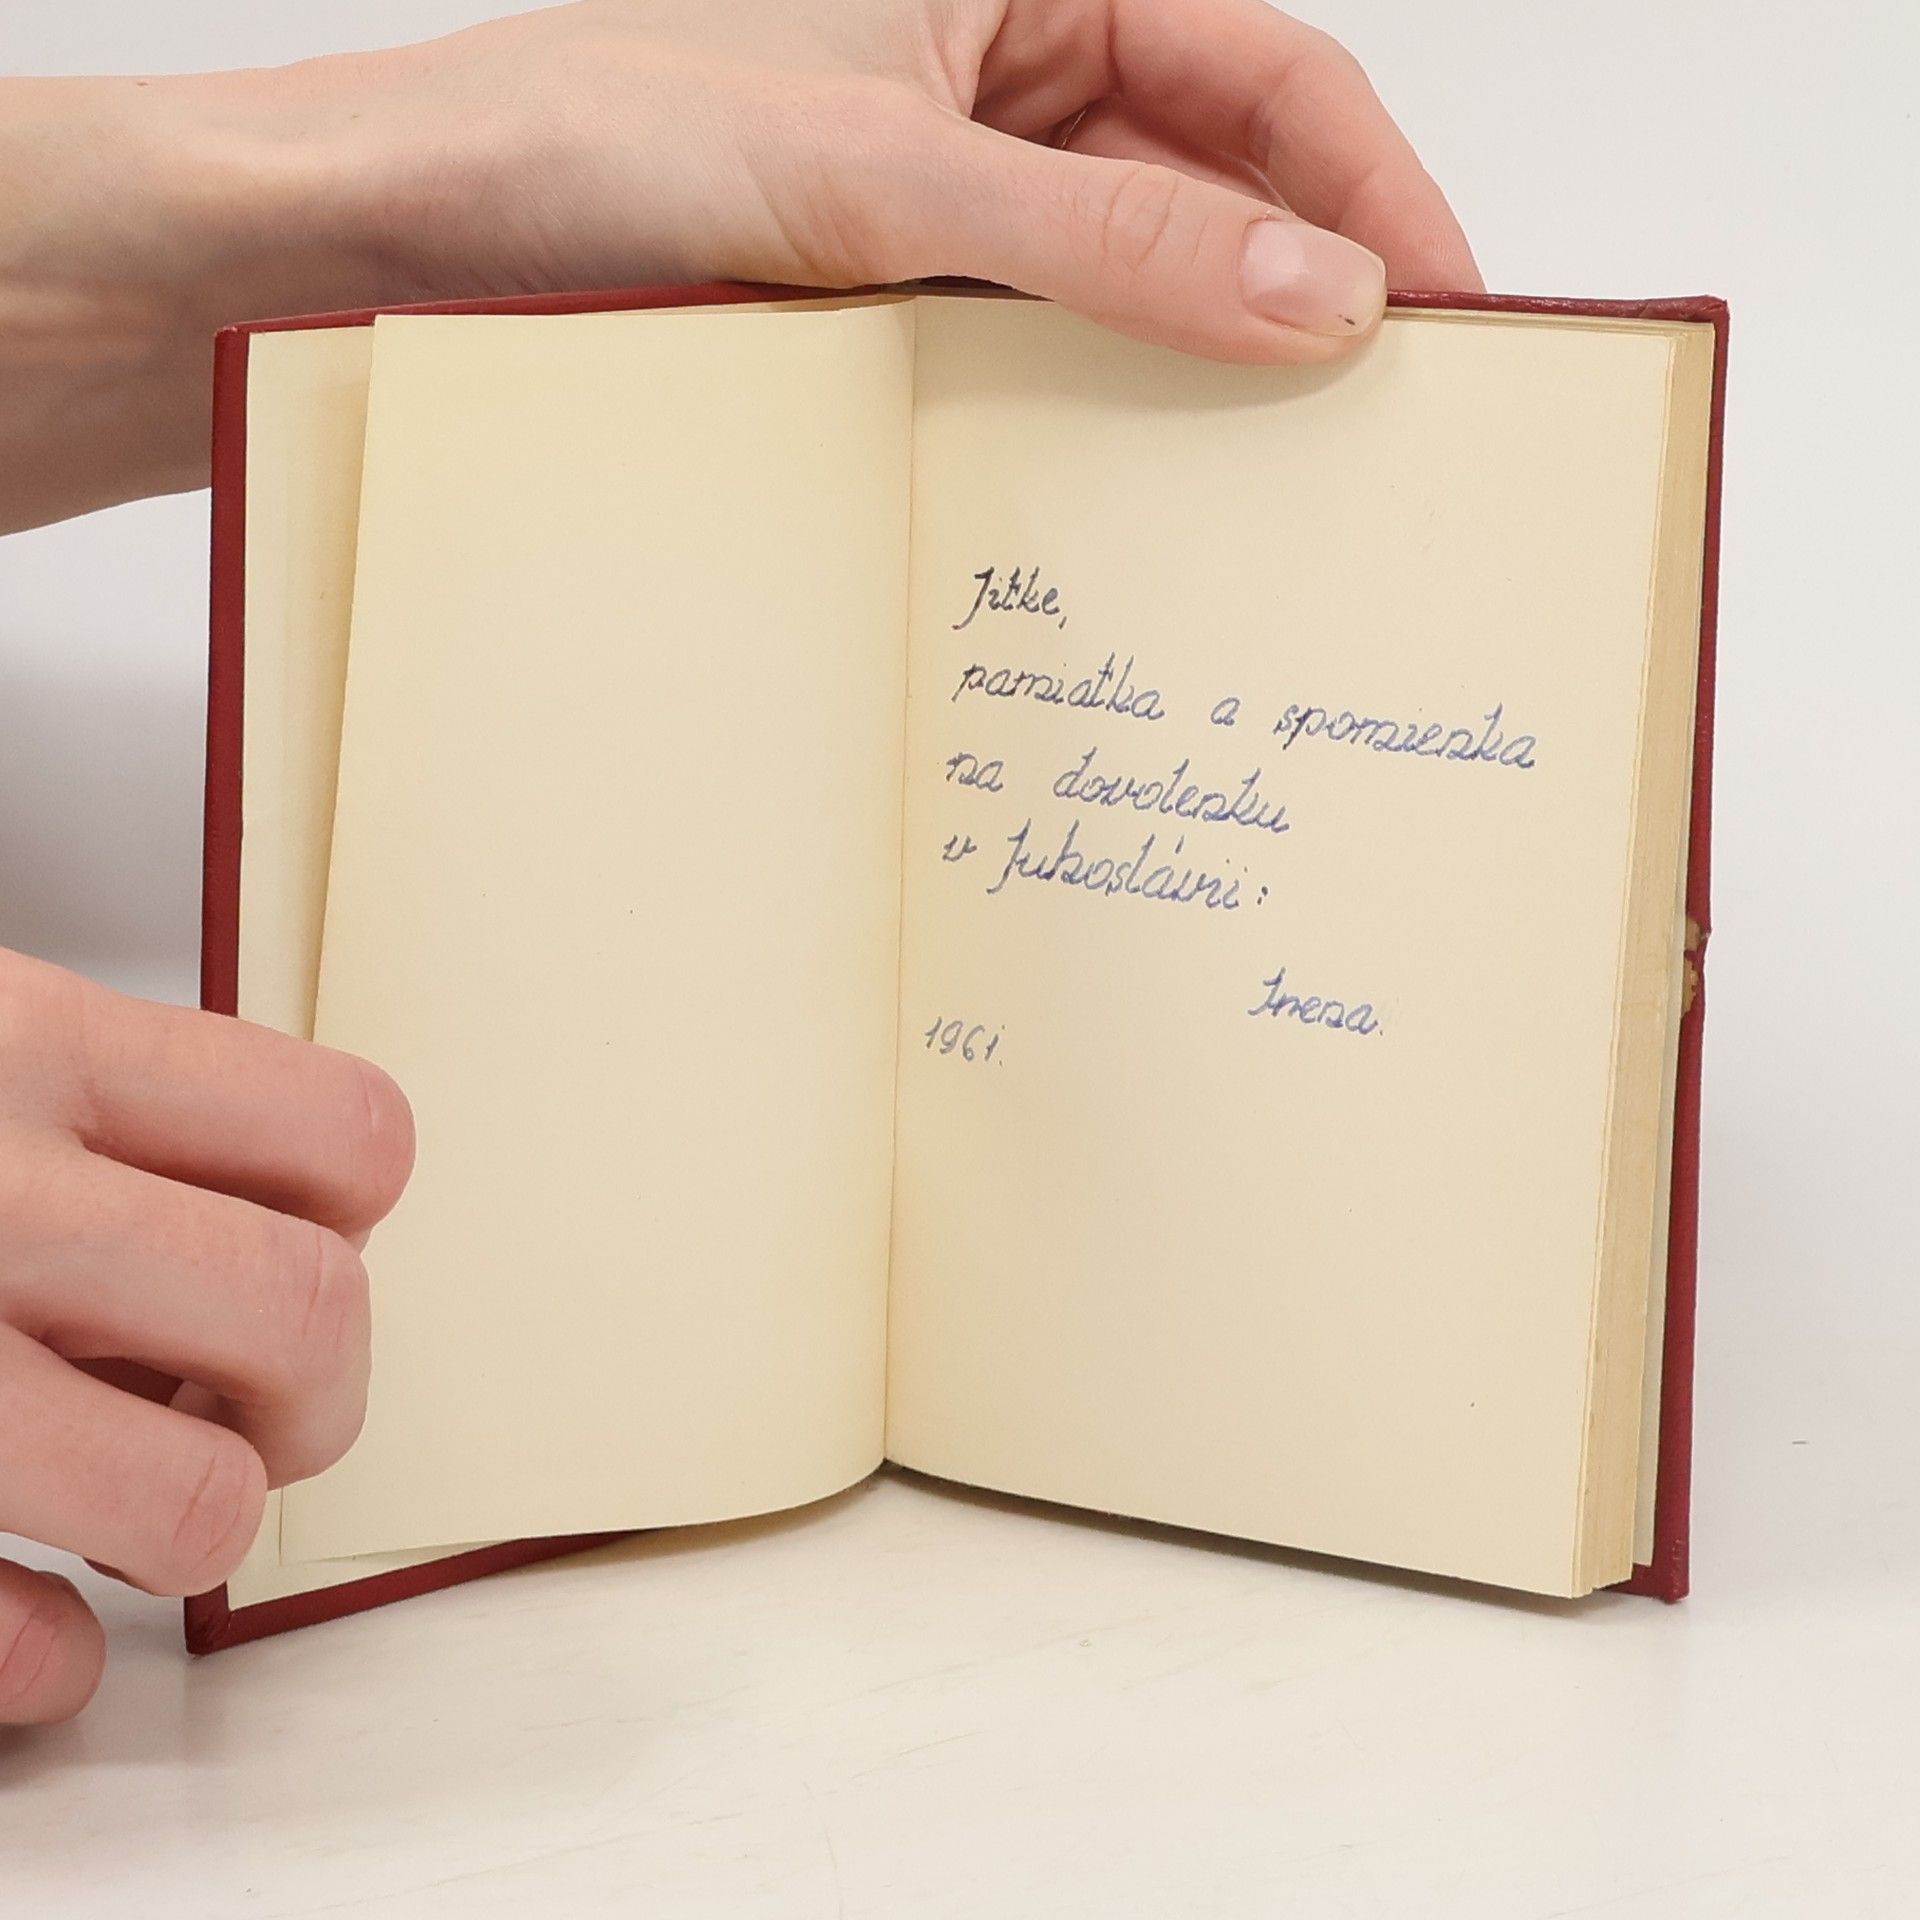 Jitke,
pamiatka a spomienka
na dovolenku
v Juhoslávii:
Irena.
1961.